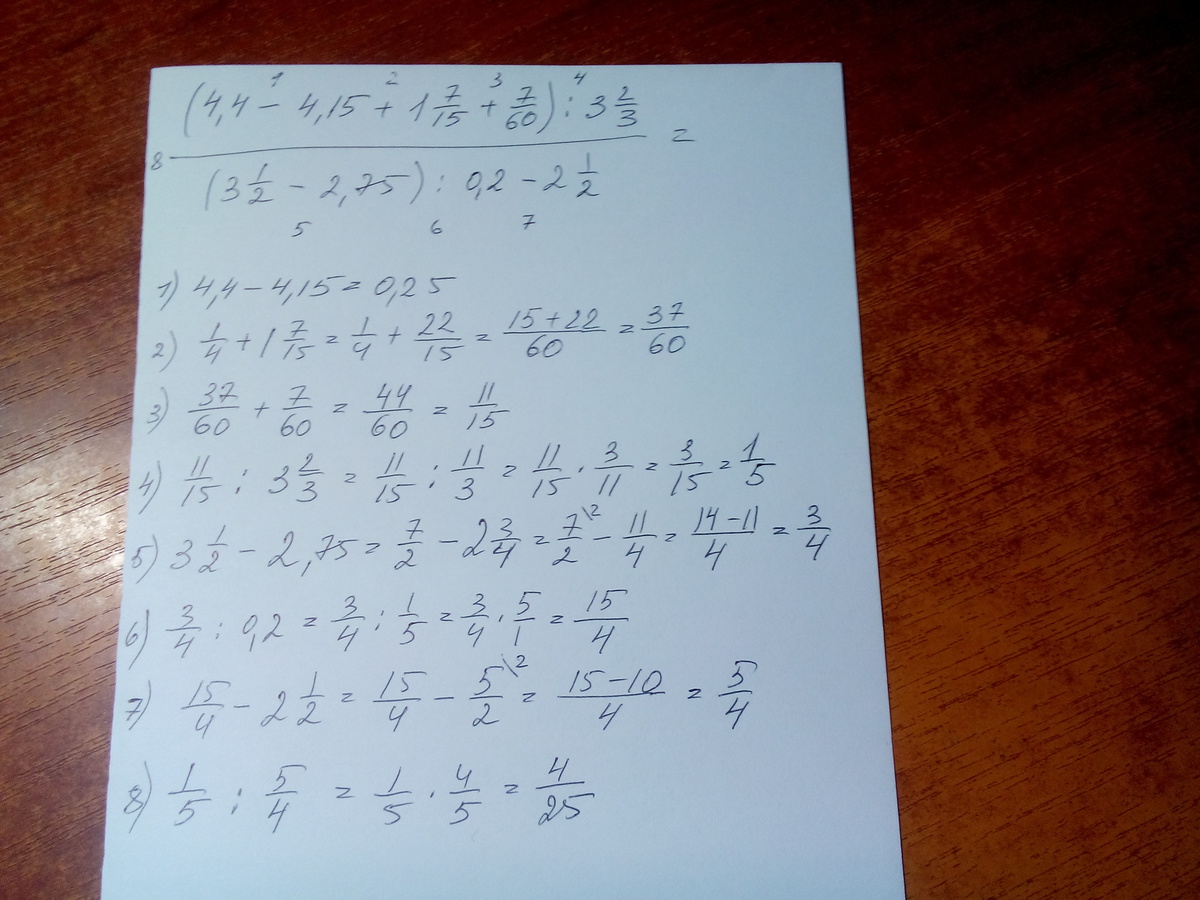 1 2 3 4
(4,4 - 4,15 + 1 7/15 + 7/60) : 3 2/3
8 =
(3 1/2 - 2,75) : 0,2 - 2 1/2
5 6 7
1) 4,4 - 4,15 = 0,25
2) 1/4 + 1 7/15 = 1/4 + 22/15 = (15+22)/60 = 37/60
3) 37/60 + 7/60 = 44/60 = 11/15
4) 11/15 : 3 2/3 = 11/15 : 11/3 = 11/15 · 3/11 = 3/15 = 1/5
5) 3 1/2 - 2,75 = 7/2 - 2 3/4 = 7/2 \2 - 11/4 = (14-11)/4 = 3/4
6) 3/4 : 0,2 = 3/4 : 1/5 = 3/4 · 5/1 = 15/4
7) 15/4 - 2 1/2 = 15/4 - 5/2 \2 = (15-10)/4 = 5/4
8) 1/5 : 5/4 = 1/5 · 4/5 = 4/25